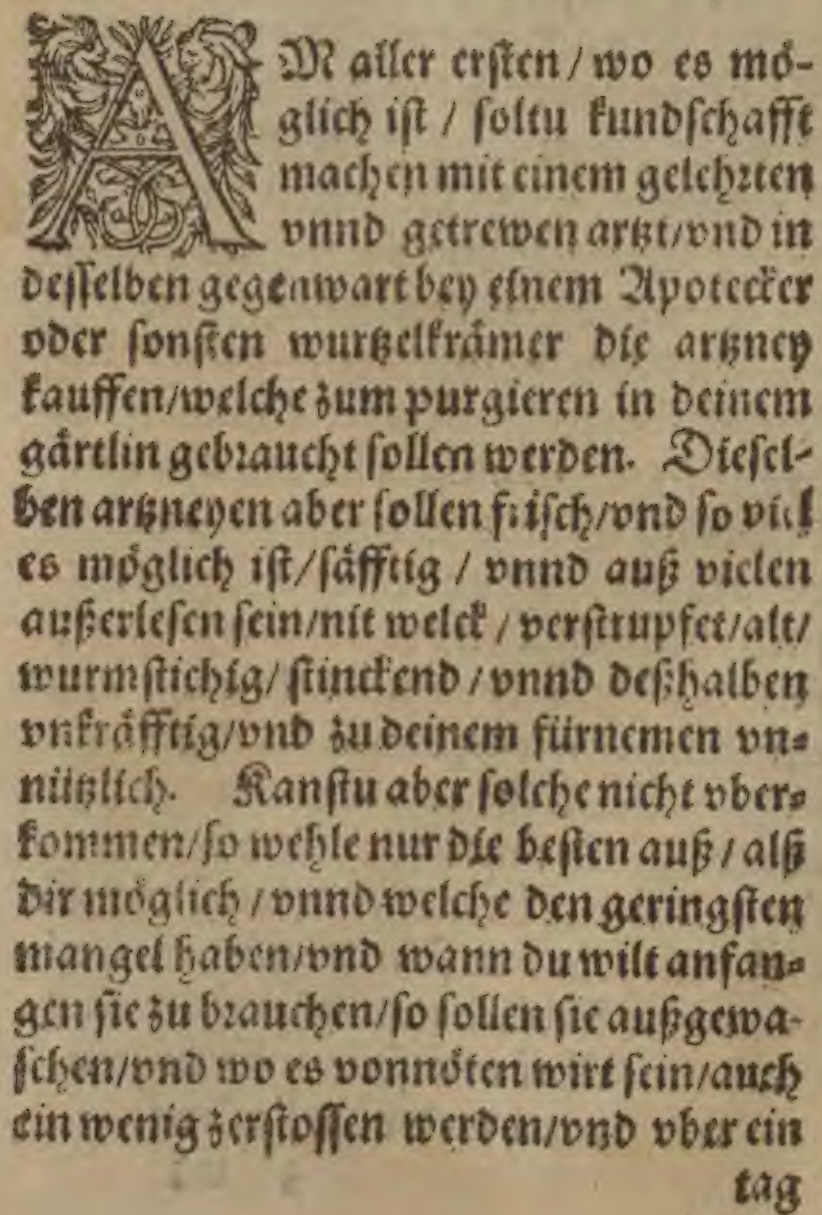 AM aller ersten / wo es mö-
glich ist / soltu kundschafft
machen mit einem gelehrten
vnnd getrewen artzt/vnd in
desselben gegenwart bey einem Apotecker
oder sonsten wurtzelkrämer die artzney
kauffen/welche zum purgieren in deinem
gärtlin gebraucht sollen werden. Diesel-
ben artzneyen aber sollen frisch/vnd so viel
es möglich ist/säfftig / vnnd auß vielen
außerlesen sein/nit welck / verstrupfet/alt/
wurmstichig/ stinckend / vnnd deßhalben
vnkräfftig/vnd zu deinem fürnemen vn-
nützlich. Kanstu aber solche nicht vber-
kommen/so wehle nur die besten auß / alß
dir möglich / vnnd welche den geringsten
mangel haben/vnd wann du wilt anfan-
gen sie zu brauchen/so sollen sie außgewa-
schen/vnd wo es vonnöten wirt sein/auch
ein wenig zerstossen werden/vnd vber ein
tag